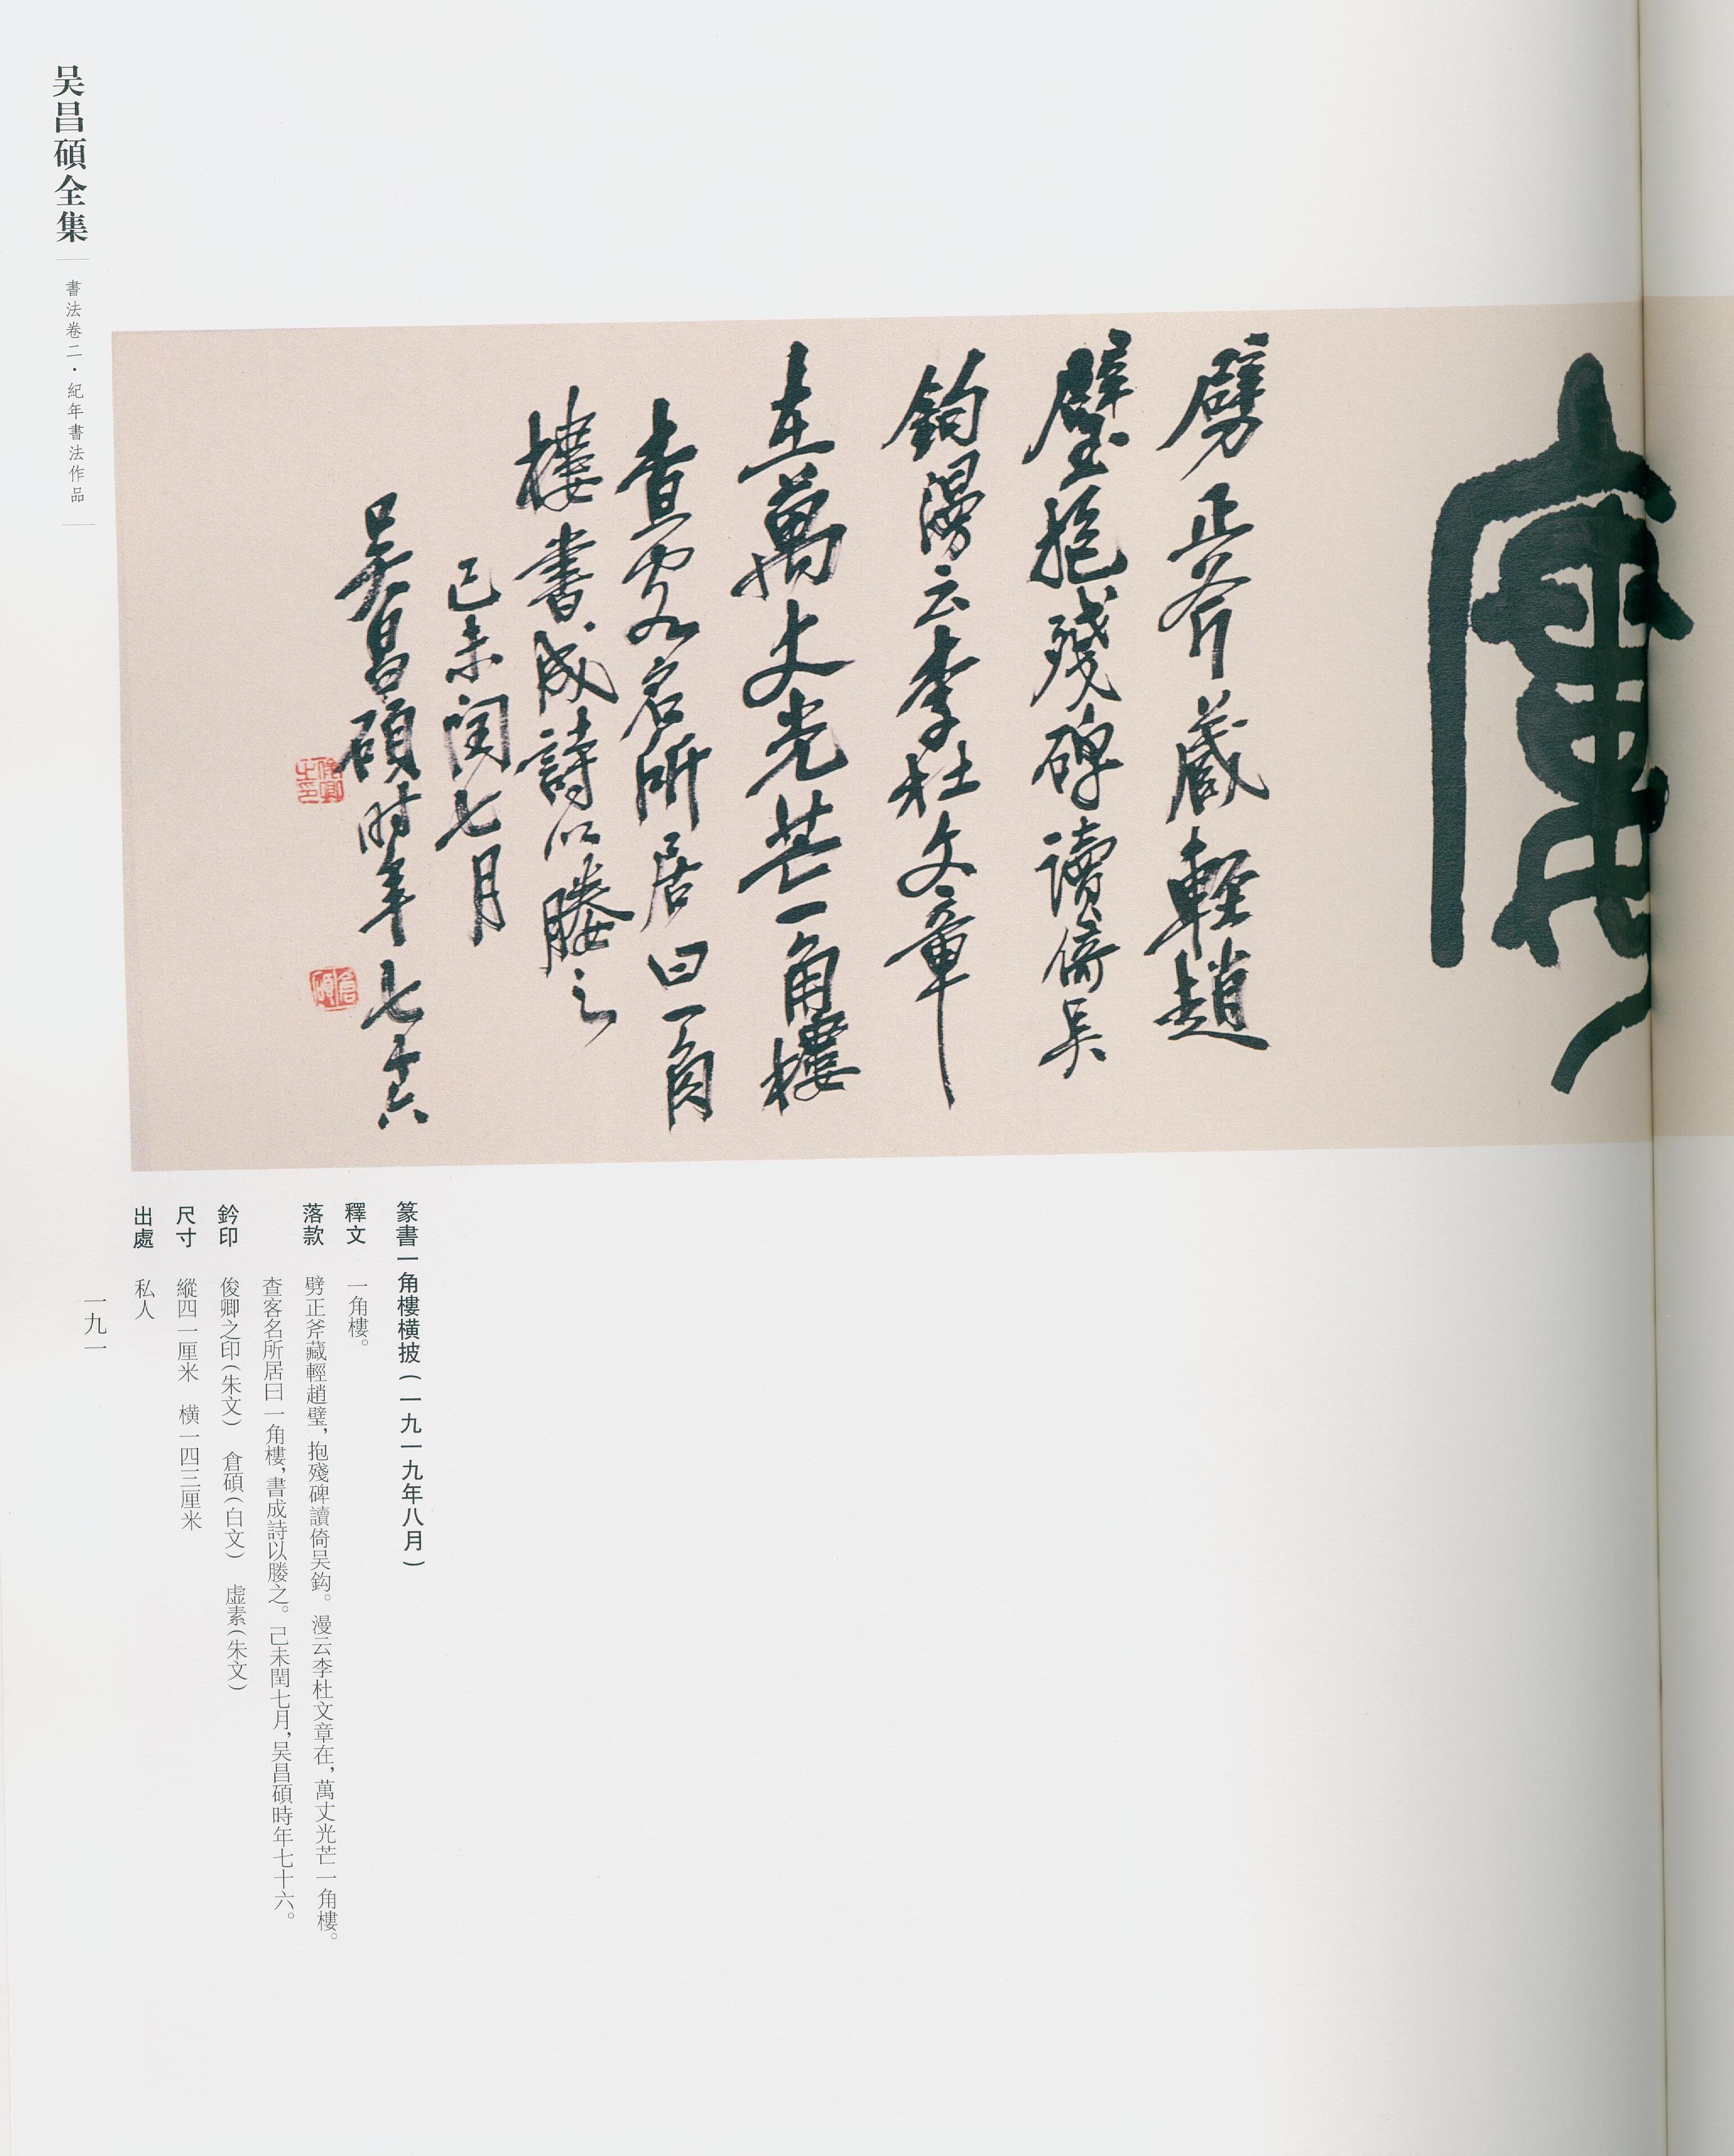 樓
劈正斧藏輕趙
璧抱殘碑讀倚吴
鈎漫云李杜文章
在萬丈光芒一角樓
查客名所居曰一角
樓書成詩以媵之
己未閏七月
吴昌碩时年七十六
俊卿之印
倉碩
吴昌碩全集
書法卷二·紀年書法作品
篆書一角樓橫披(一九一九年八月)
釋文 一角樓。
落款 劈正斧藏輕趙璧,抱殘碑讀倚吴鈎。漫云李杜文章在,萬丈光芒一角樓。
查客名所居曰一角樓,書成詩以媵之。己未閏七月,吴昌碩時年七十六。
鈐印 俊卿之印(朱文) 倉碩(白文) 虚素(朱文)
尺寸 縱四一厘米 橫一四三厘米
出處 私人
一九一